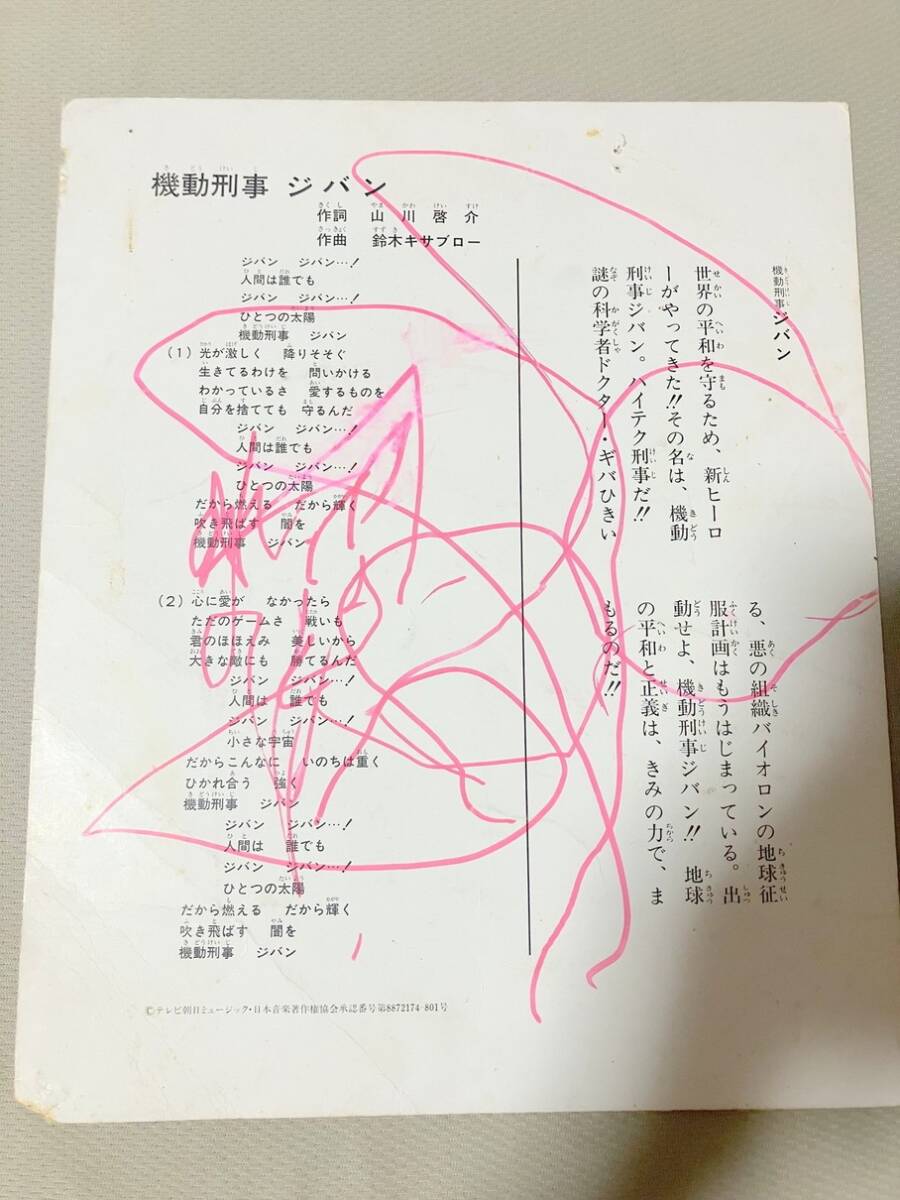 機動刑事 ジバン
作詞 山川啓介
作曲 鈴木キサブロー
ジバン ジバン…!
人間は誰でも
ジバン ジバン…!
ひとつの太陽
機動刑事 ジバン
(1) 光が激しく 降りそそぐ
生きてるわけを 問いかける
わかっているさ 愛するものを
自分を捨てても 守るんだ
ジバン ジバン…!
人間は誰でも
ジバン ジバン…!
ひとつの太陽
だから燃える だから輝く
吹き飛ばす 闇を
機動刑事 ジバン
(2) 心に愛が なかったら
ただのゲームさ 戦いも
君のほほえみ 美しいから
大きな敵にも 勝てるんだ
ジバン ジバン…!
人間は 誰でも
ジバン ジバン…!
小さな宇宙
だからこんなに いのちは重く
ひかれ合う 強く
機動刑事 ジバン
ジバン ジバン…!
人間は 誰でも
ジバン ジバン…!
ひとつの太陽
だから燃える だから輝く
吹き飛ばす 闇を
機動刑事 ジバン
©テレビ朝日ミュージック・日本音楽著作権協会承認番号第8872174-801号
機動刑事ジバン
世界の平和を守るため、新ヒーロ
ーがやってきた!!その名は、機動
刑事ジバン。ハイテク刑事だ!!
謎の科学者ドクター・ギバひきい
る、悪の組織バイオロンの地球征
服計画はもうはじまっている。出
動せよ、機動刑事ジバン!! 地球
の平和と正義は、きみの力で、ま
もるのだ!!